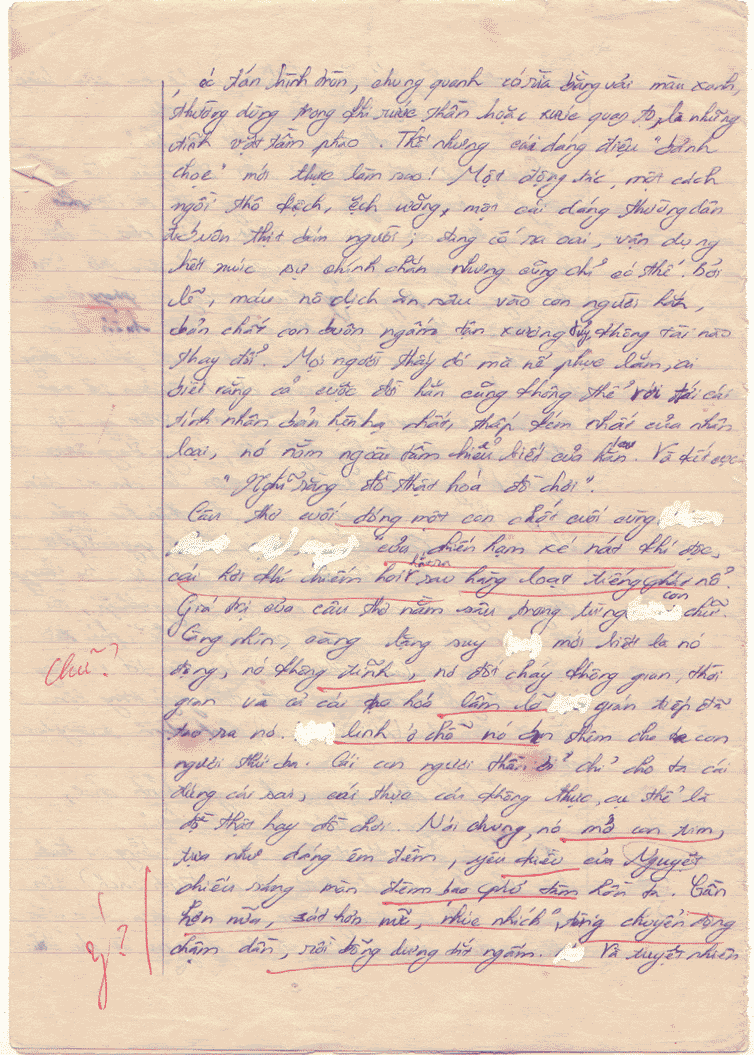 , có tán hình tròn, chung quanh có rìa bằng vải màu xanh,
thường dùng trong khi rước thần hoặc rước quan to, là những
vật tầm phào. Thế nhưng cái dáng điệu "bảnh
choẹ" mới thực làm sao! Một động tác, một cách
ngồi thô kệch, ếch ương, một cái dáng thường dân
buôn thịt bán người; đang cố ra oai, vận dụng
hết mức sự chính chắn nhưng cũng chỉ có thế. Bởi
lẽ, máu nô dịch ăn sâu vào con người hắn,
bản chất con buôn ngấm tận xương tủy không tài nào
thay đổi. Mọi người thấy đó mà nể phục lắm, ai
biết rằng cả cuộc đời hắn cũng không thể với tới cái
tính nhân bản hèn hạ nhất, thấp kém nhất của nhân
loại, nó nằm ngoài tầm hiểu biết của hắn. Và kết cục:
"Nghĩ rằng đồ thật hoá đồ chơi".
Câu thơ cuối đóng một con chốt cuối cùng
của chiến hạm xé nát khí độc,
cái hơi thở chiếm hơi sau hàng loạt tiếng nổ.
Giá trị của câu thơ nằm sâu trong từng con chữ.
Càng nhìn, càng lặng suy mới biết là nó
động, nó không tĩnh, nó đốt cháy không gian, thời
gian và cả cái tạo hoá lầm lỡ gián tiếp đã
tạo ra nó. linh ở chỗ nó thêm cho con
người thứ ba. Cái con người thần bí chỉ cho ta cái
đúng cái sai, cái thực cái không thực, cụ thể là
đồ thật hay đồ chơi. Nói chung, nó mở con tim,
tựa như dáng êm đềm, yêu kiều của Nguyệt
chiếu sáng màn đêm bao phủ tâm hồn ta. Gần
hơn nữa, sát hơn nữa, "nhúc nhích", từng chuyển động
chậm dần, rồi bỗng dưng tắt ngấm. Và tuyệt nhiên
Chữ?
ý?